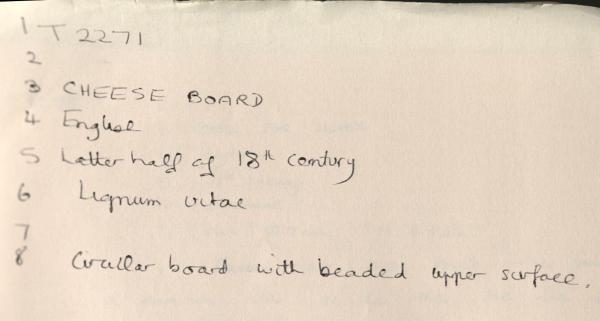 1 T 2271
2
3 CHEESE BOARD
4 English
5 Latter half of 18th century
6 Lignum vitae
7
8 Circular board with beaded upper surface.